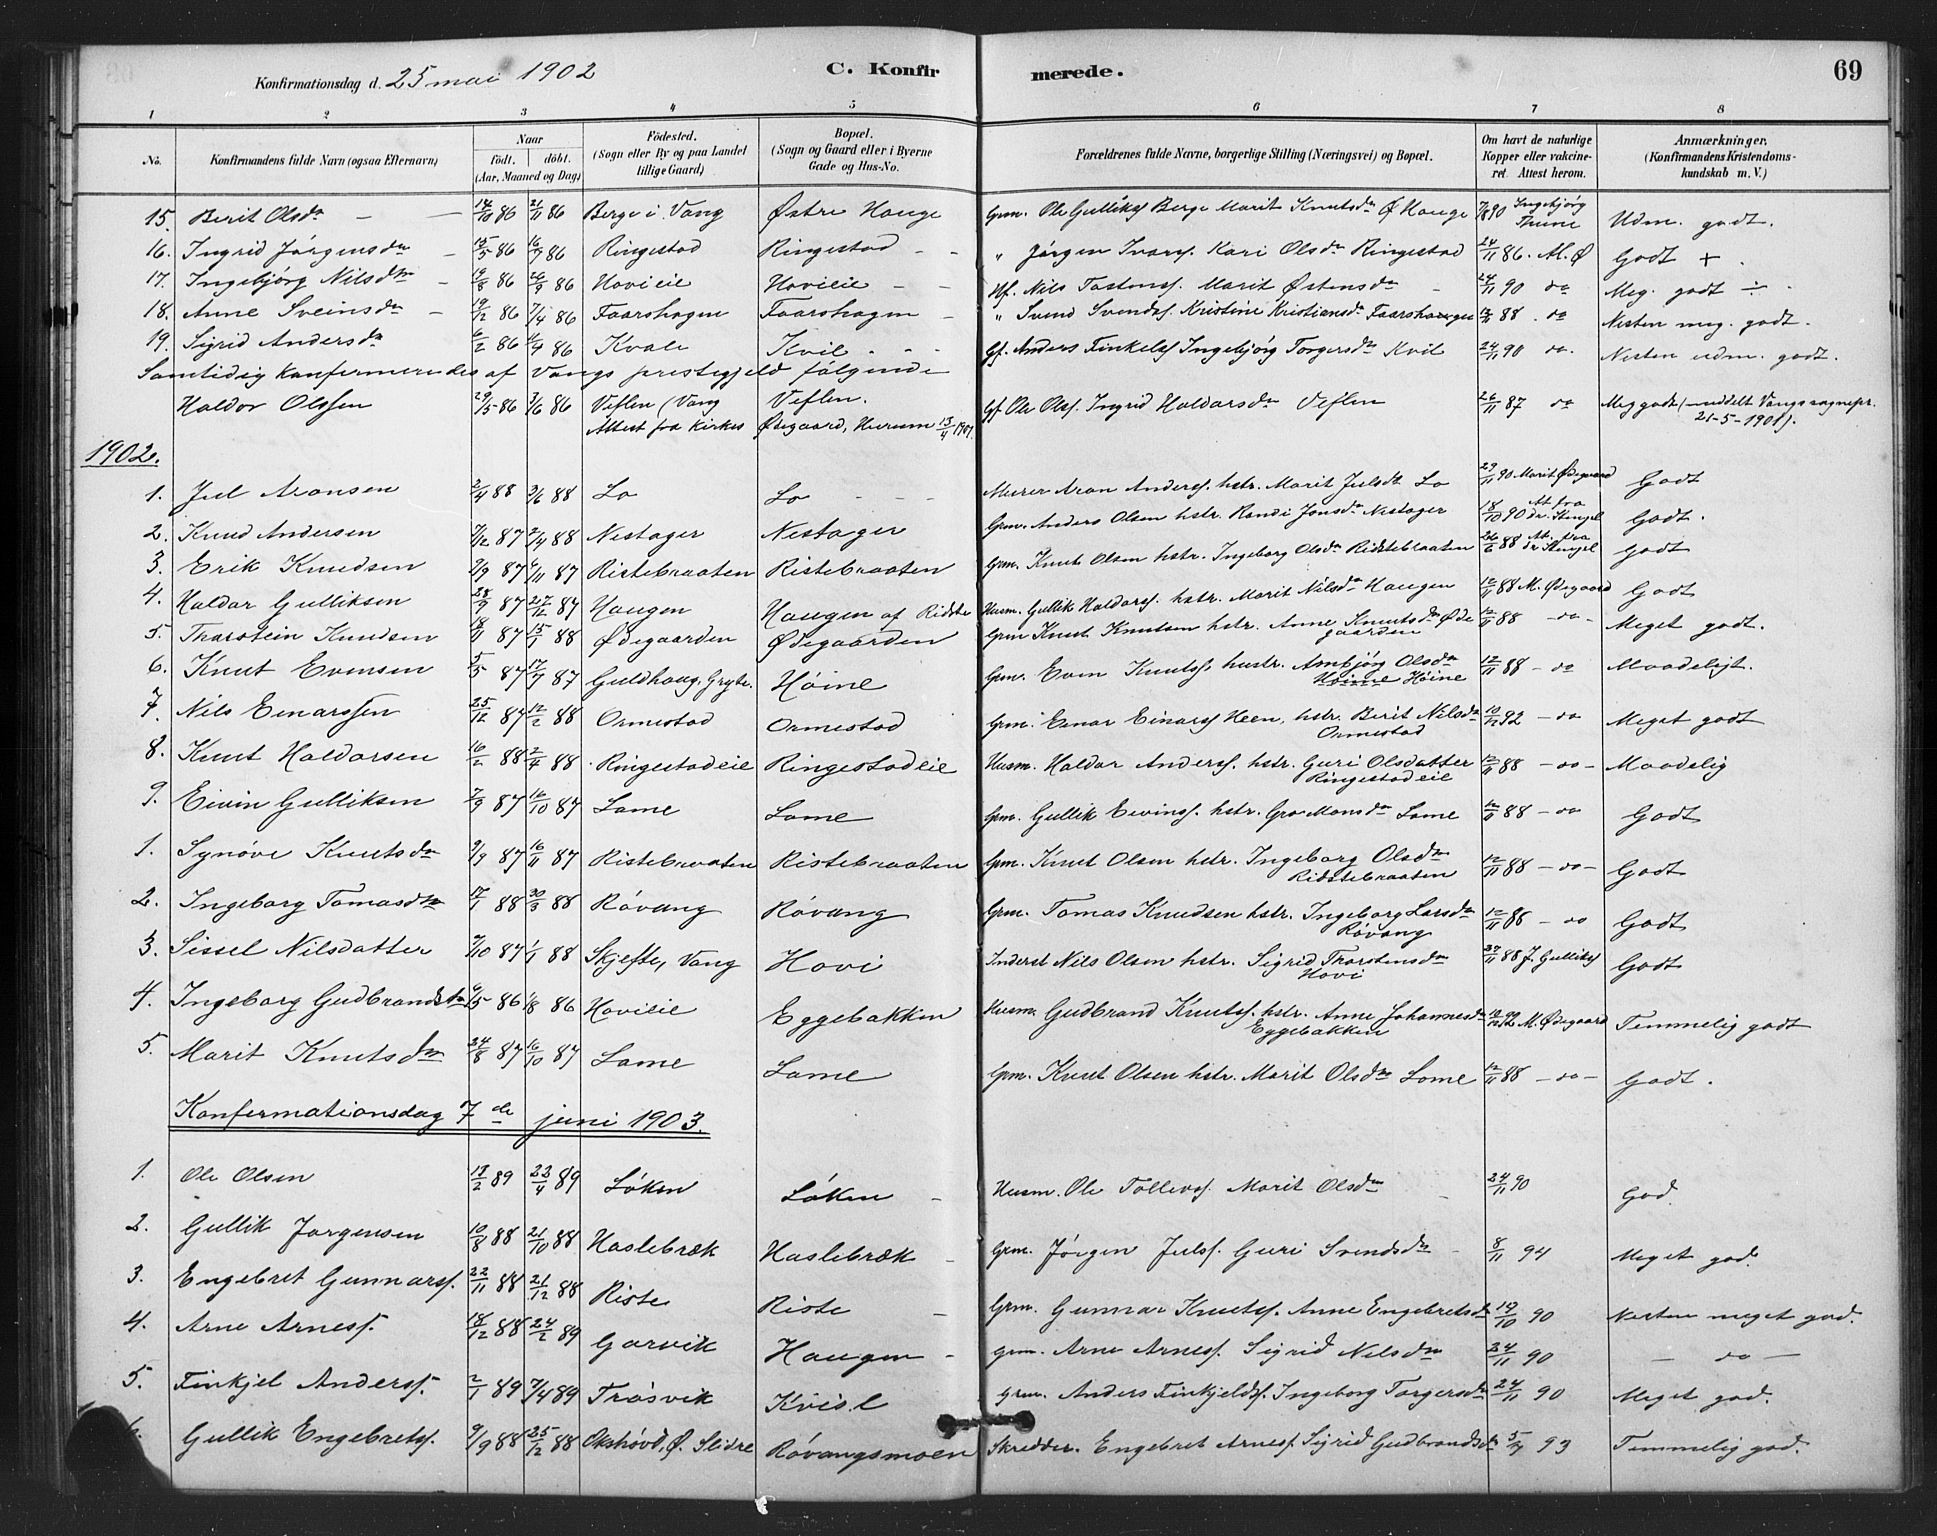 Konfirmationsdag d. 25 mai 1902 C. Konfirmerede. 69
1 2 3 4 5 6 7 8
No. Konfirmandens fulde Navn (ogsaa Efternavn) Naar født. døbt. (Aar, Maaned og Dag) Fødested. (Sogn eller By og paa Landet tillige Gaard) Bopæl. (Sogn og Gaard eller i Byerne Gade og Hus-No. Forældrenes fulde Navne, borgerlige Stilling (Næringsvei) og Bopæl. Om havt de naturlige Kopper eller vakcineret. Attest herom. Anmærkninger. (Konfirmandens Kristendomskundskab m. V.)
15. Berit Olsdr 14/10 86 21/11 86 Berge i Vang Østre Hauge Grm. Ole Gulliks. Berge Marit Knutsdr Ø Hauge 7/8 90 Ingebjørg Thune Udm. godt.
16. Ingrid Jørgensdr 15/5 86 16/7 86 Ringestad Ringestad " Jørgen Ivars. Kari Olsdr Ringestad 24/11 86. Al. Ø Godt +
17. Ingebjørg Nilsdr 19/8 86 26/9 86 Hovieie Hovieie Hf. Nils Tostens. Marit Østensdr 24/11 90 do Meg. godt ÷
18. Anne Sveinsdr 19/12 86 7/4 86 Faarshagen Faarshagen " Svend Svends. Kristine Kristiansdr Faarshagen 12/11 88. do Nesten meg. godt.
19. Sigrid Andersdr 6/2 86 11/4 86 Kvale Kvil Gf. Anders Finkels. Ingebjørg Torgersdr Kvil 24/11 90 do. Nesten udm. godt.
Samtidig konfermeredes af Vangs prestegjeld følgende
Haldor Olssen 29/5 86 3/6 86 Veflen (Vang Veflen. Gf Ole Ols. Ingrid Haldorsdr Veflen 26/11 87 do Meg godt (meddelt Vangs sognepr. 21-5-1901).
Attest fra Kirkes Ødegaard, Hurum 13/4 1901.
1902.
1. Jul Aronsen 2/4 88 3/6 88 Lo Lo Murer Aron Anders. hstr. Marit Julsdt Lo 29/11 90 Marit Ødegaard Godt
2. Knud Andersen 7/12 87 2/4 88 Nestager Nestager Grm. Anders Olsen hstr. Randi Jonsdr Nestager 18/10 90 At. fra dr. Stengel Godt.
3. Erik Knudsen 2/9 87 4/11 87 Ristebraaten Ristebraaten Grm. Knut Olsen hstr. Ingeborg Olsdr Ridstebraaten 26/6 88 At. fra dr Stengel Godt
4. Haldor Gulliksen 28/9 87 27/12 87 Haugen Haugen af Ridste Husm. Gullik Haldors. hstr. Marit Nilsdr Haugen 12/11 88 M. Ødegaard Godt
5. Thorstein Knudsen 18/11 87 15/1 88 Ødegaarden Ødegaarden Grm Knut Knutsen hstr. Anne Knutsdr Ødegaarden 12/11 88 - do - Meget godt.
6. Knut Evensen 5/5 87 17/7 87 Guldhaug, Gryte. Høine Grm. Even Knuts. hustr. Ambjørg Olsdr Høine Høine 12/11 88 - do Maadeligt.
7. Nils Einarssen 25/12 87 12/2 88 Ormestad Ormestad Grm. Einar Einars. Heen, hstr. Berit Nilsdr Ormestad 10/12 92 - do Meget godt
8. Knut Haldorsen 16/2 88 2/4 88 Ringestadeie Ringestadeie Husm. Haldor Anders. hstr. Guri Olsdatter Ringestadeie 12/11 88 - do - Maadelig
9. Eivin Gulliksen 7/9 87 16/10 87 Lome Lome Grm. Gullik Eivins. hstr. Gro Monsdr Lome 12/11 88 - do Godt
1. Synøve Knutsdr 9/9 87 16/11 87 Ristebraaten Ristebraaten Grm. Knut Olsen hstr. Ingeborg Olsdr Ridstebraaten 12/11 88 - do - Godt
2. Ingeborg Tomasdr 17/1 88 30/3 88 Røvang Røvang Grm. Tomas Knudsen hstr. Ingeborg Larsdr Røvang 12/11 88 - do Godt
3. Sissel Nilsdatter 7/10 87 1/1 88 Skjefte, Vang Hovi Inderst Nils Olsen hstr. Sigrid Thorstensdr Hovi 27/11 88 J. Gulliks Godt
4. Ingeborg Gudbrandsdr 9/5 86 1/8 86 Hovieie Eggebakken Husm. Gudbrand Knuts. hstr. Anne Johannesdr Eggebakken M. Ødegaard Temmelig godt
5. Marit Knutsdr 24/8 87 16/10 87 Lome Lome Grm. Knut Olsen hstr. Marit Olsdr Lome 12/11 88 - do - Godt.
Konfermationsdag 7de juni 1903.
1. Ole Olsen 18/2 89 22/4 89 Løken Løken Husm. Ole Tollevs. Marit Olsdr 24/11 90 God.
2. Gullik Jørgensen 10/8 88 21/10 88 Haslebræk Haslebræk Grm. Jørgen Juls. Guri Svendsdr 8/11 94 Meget god.
3. Engebret Gunnars. 22/11 88 21/12 88 Riste Riste Grm. Gunnar Knuts. Anne Engebretsdr 19/10 90 Nesten meget god.
4. Arne Arnes. 18/12 88 24/2 89 Garvik Haugen grm. Arne Arnes. Sigrid Nilsdr 24/11 90 - do -
5. Finkjel Anders. 2/1 89 7/4 89 Trøsvik Kvil grm. Anders Finkjelds. Ingeborg Torgersdr 24/11 90 Meget god.
6. Gullik Engebrets. 9/9 88 25/12 88 Okshovd, Ø. Slidre Røvangsmoen Skredder. Engebret Arnes. Sigrid Gudbrandsdr 5/7 93 Temmelig god.